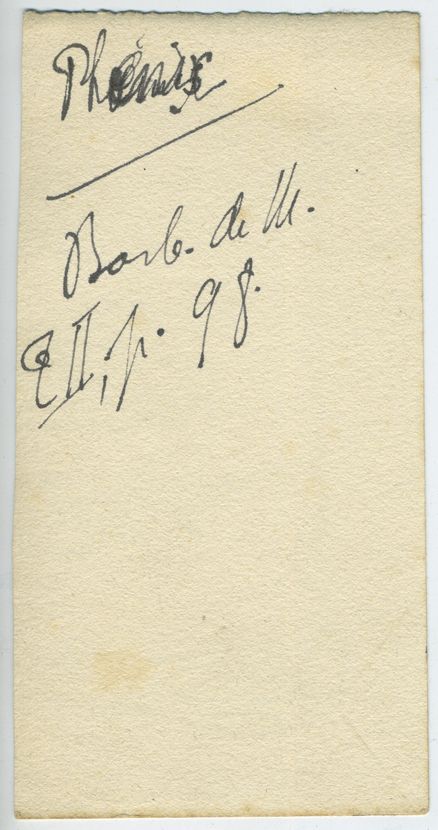 Phénix
Barb. de M.
T II, p. 98.